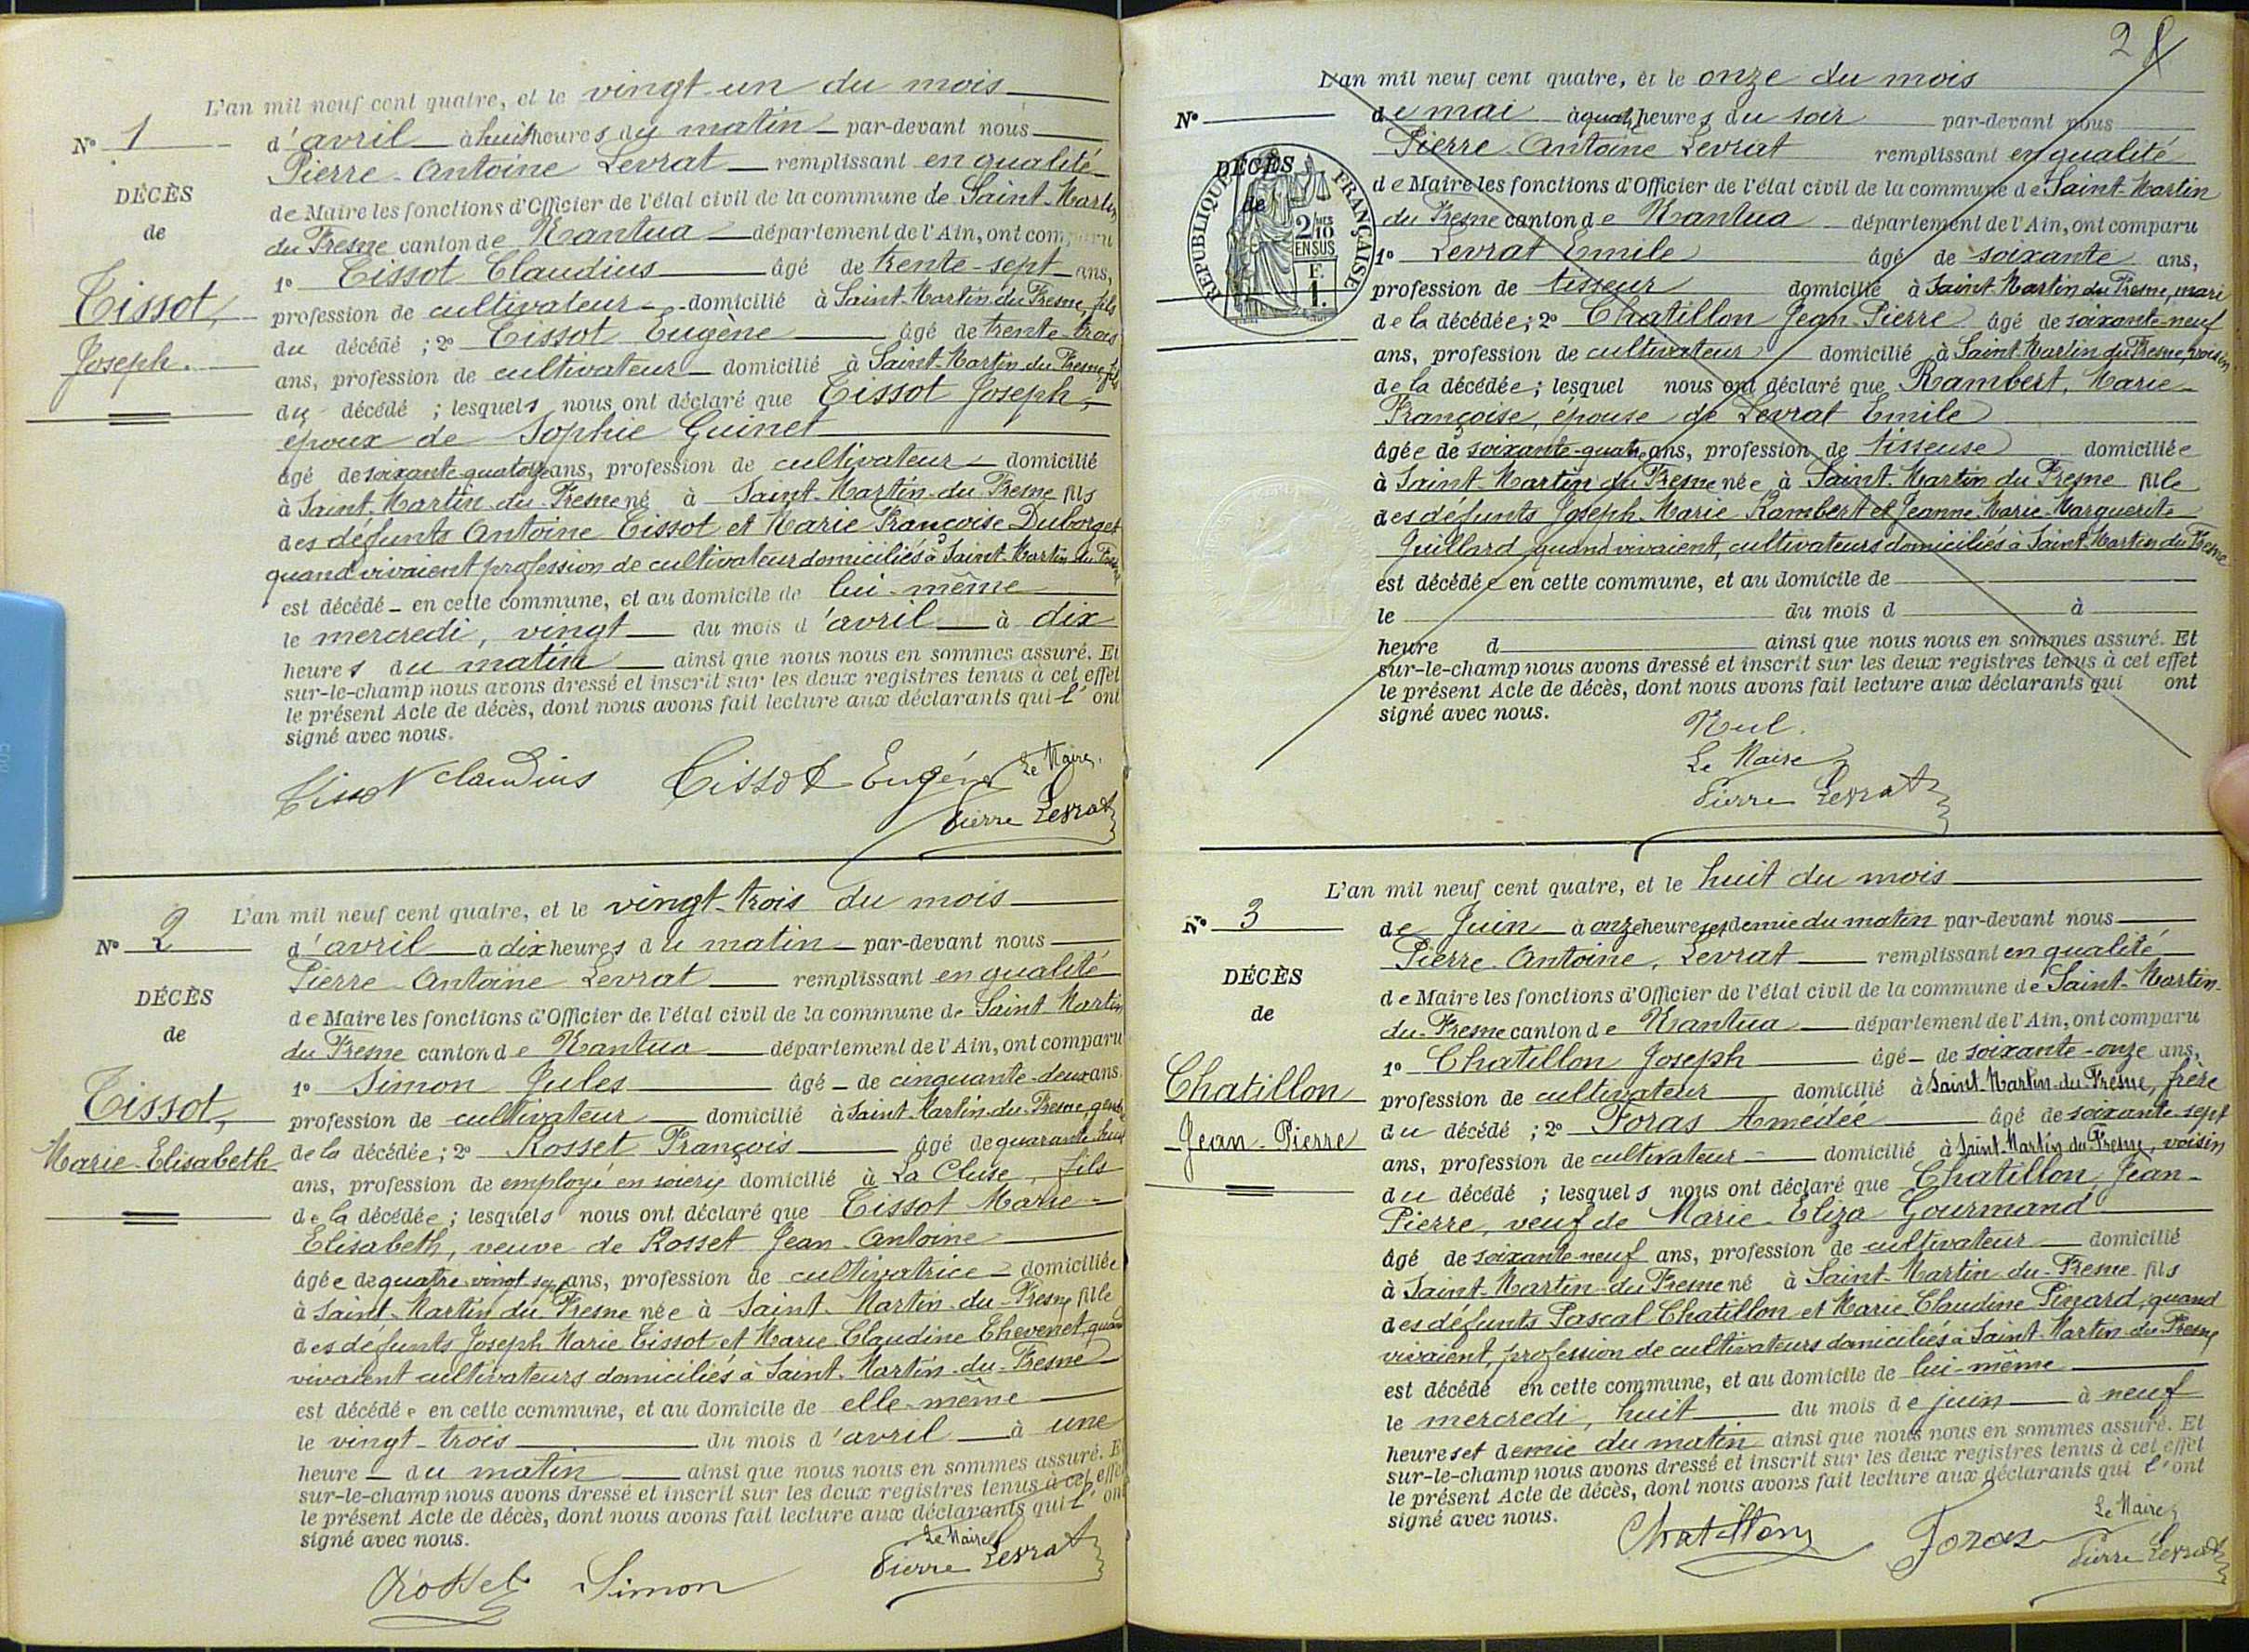 L'an mil neuf cent quatre, et le vingt-un du mois
N° 1
d'avril à huit heures du matin par-devant nous
Pierre-Antoine Levrat remplissant en qualité
DÉCÈS
de Maire les fonctions d'Officier de l'état civil de la commune de Saint-Martin
de
du Fresne canton de Nantua département de l'Ain, ont comparu
1° Tissot Claudius âgé de trente-sept ans,
Tissot,
profession de cultivateur domicilié à Saint-Martin du Fresne, fils
du décédé ; 2° Tissot Eugène âgé de trente-trois
Joseph.
ans, profession de cultivateur domicilié à Saint-Martin du Fresne, fils
du décédé ; lesquels nous ont déclaré que Tissot Joseph,
époux de Sophie Guinet
âgé de soixante-quatorze ans, profession de cultivateur domicilié
à Saint-Martin du Fresne né à Saint-Martin-du-Fresne fils
des défunts Antoine Tissot et Marie Françoise Duborget
quand vivaient profession de cultivateur domiciliés à Saint-Martin du Fresne
est décédé en cette commune, et au domicile de lui-même
le mercredi, vingt du mois d'avril à dix
heures du matin ainsi que nous nous en sommes assuré. Et
sur-le-champ nous avons dressé et inscrit sur les deux registres tenus à cet effet
le présent Acte de décès, dont nous avons fait lecture aux déclarants qui l'ont
signé avec nous.
Tissot Claudius Tissot Eugène Le Maire,
Pierre Levrat
L'an mil neuf cent quatre, et le vingt-trois du mois
N° 2
d'avril à dix heures du matin par-devant nous
Pierre-Antoine Levrat remplissant en qualité
DÉCÈS
de Maire les fonctions d'Officier de l'état civil de la commune de Saint Martin
de
du Fresne canton de Nantua département de l'Ain, ont comparu
1° Simon Jules âgé de cinquante-deux ans.
Tissot,
profession de cultivateur domicilié à Saint-Martin-du-Fresne, gendre
Marie-Elisabeth
de la décédée ; 2° Rosset François âgé de quarante-huit
ans, profession de employé en soierie domicilié à La Cluse, fils
de la décédée ; lesquels nous ont déclaré que Tissot Marie-
Elisabeth, veuve de Rosset Jean-Antoine
âgée de quatre-vingt-sept ans, profession de cultivatrice domiciliée
à Saint-Martin du Fresne née à Saint-Martin-du-Fresne fille
des défunts Joseph Marie Tissot et Marie-Claudine Thevenet, quand
vivaient cultivateurs domiciliés à Saint-Martin-du-Fresne
est décédée en cette commune, et au domicile de elle-même
le vingt-trois du mois d'avril à une
heure du matin ainsi que nous nous en sommes assuré. Et
sur-le-champ nous avons dressé et inscrit sur les deux registres tenus à cet effet
le présent Acte de décès, dont nous avons fait lecture aux déclarants qui l'ont
signé avec nous.
Le Maire
Rosset Simon Pierre Levrat
2
L'an mil neuf cent quatre, et le onze du mois
N°
de mai à quatre heures du soir par-devant nous
Pierre-Antoine Levrat remplissant en qualité
DÉCÈS
de
RÉPUBLIQUE FRANÇAISE
2/10 EN SUS
F.
1.
de Maire les fonctions d'Officier de l'état civil de la commune de Saint-Martin
du Fresne canton de Nantua département de l'Ain, ont comparu
1° Levrat Emile âgé de soixante ans,
profession de tisseur domicilié à Saint-Martin du Fresne, mari
de la décédée ; 2° Chatillon Jean-Pierre âgé de soixante-neuf
ans, profession de cultivateur domicilié à Saint-Martin du Fresne, voisin
de la décédée ; lesquel nous ont déclaré que Rambert, Marie-
Françoise, épouse de Levrat Emile
âgée de soixante-quatre ans, profession de tisseuse domiciliée
à Saint-Martin du Fresne née à Saint-Martin du Fresne fille
des défunts Joseph-Marie Rambert et Jeanne-Marie-Marguerite
Juillard, quand vivaient, cultivateurs domiciliés à Saint-Martin du Fresne
est décédée en cette commune, et au domicile de
le du mois d à
heure d ainsi que nous nous en sommes assuré. Et
sur-le-champ nous avons dressé et inscrit sur les deux registres tenus à cet effet
le présent Acte de décès, dont nous avons fait lecture aux déclarants qui ont
signé avec nous.
Nul.
Le Maire
Pierre Levrat
L'an mil neuf cent quatre, et le huit du mois
N° 3
de Juin à onze heures et demie du matin par-devant nous
Pierre-Antoine, Levrat remplissant en qualité
DÉCÈS
de Maire les fonctions d'Officier de l'état civil de la commune de Saint-Martin-
de
du-Fresne canton de Nantua département de l'Ain, ont comparu
1° Chatillon Joseph âgé de soixante-onze ans,
Chatillon
profession de cultivateur domicilié à Saint-Martin-du-Fresne, frère
Jean-Pierre
du décédé ; 2° Foras Amédée âgé de soixante-sept
ans, profession de cultivateur domicilié à Saint-Martin du Fresne, voisin
du décédé ; lesquels nous ont déclaré que Chatillon, Jean-
Pierre, veuf de Marie-Eliza Gourmand
âgé de soixante-neuf ans, profession de cultivateur domicilié
à Saint-Martin-du-Fresne né à Saint-Martin-du-Fresne fils
des défunts Pascal Chatillon et Marie Claudine Pinard, quand
vivaient, profession de cultivateurs domiciliés à Saint-Martin-du-Fresne
est décédé en cette commune, et au domicile de lui-même
le mercredi, huit du mois de juin à neuf
heures et demie du matin ainsi que nous nous en sommes assuré. Et
sur-le-champ nous avons dressé et inscrit sur les deux registres tenus à cet effet
le présent Acte de décès, dont nous avons fait lecture aux déclarants qui l'ont
signé avec nous.
Le Maire
Chatillon Foras Pierre Levrat